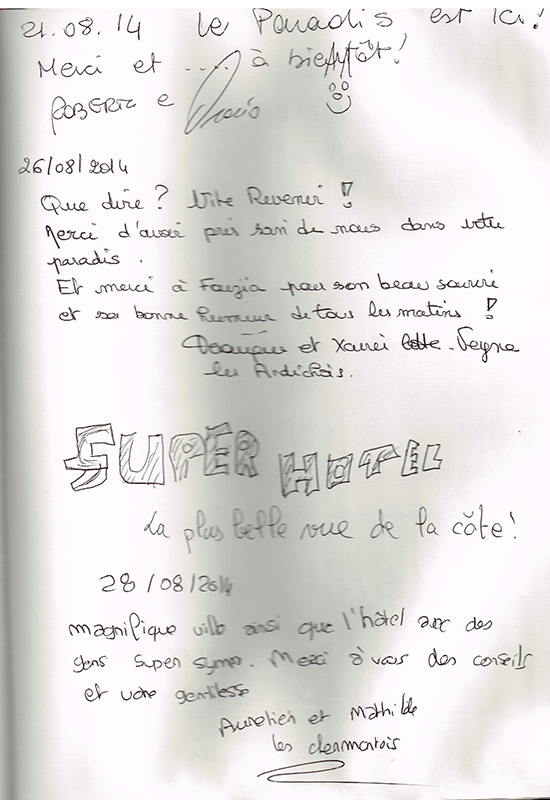 21.08.14 Le Paradis est Ici!
Merci et ..... à bientôt!
ROBERTO e
26/08/2014
Que dire? Vite Revenir!
Merci d'avoir pris soin de nous dans votre
paradis.
Et merci à Fauzia pour son beau sourire
et sa bonne humeur de tous les matins!
et Xavier Veyre
les Ardéchois.
SUPER HOTEL
La plus belle vue de la côte!
28/08/2014
Magnifique ville ainsi que l'hôtel avec des
gens super sympa. Merci à vous des conseils
et votre gentillesse
Aurelien et Mathilde
les clermontois